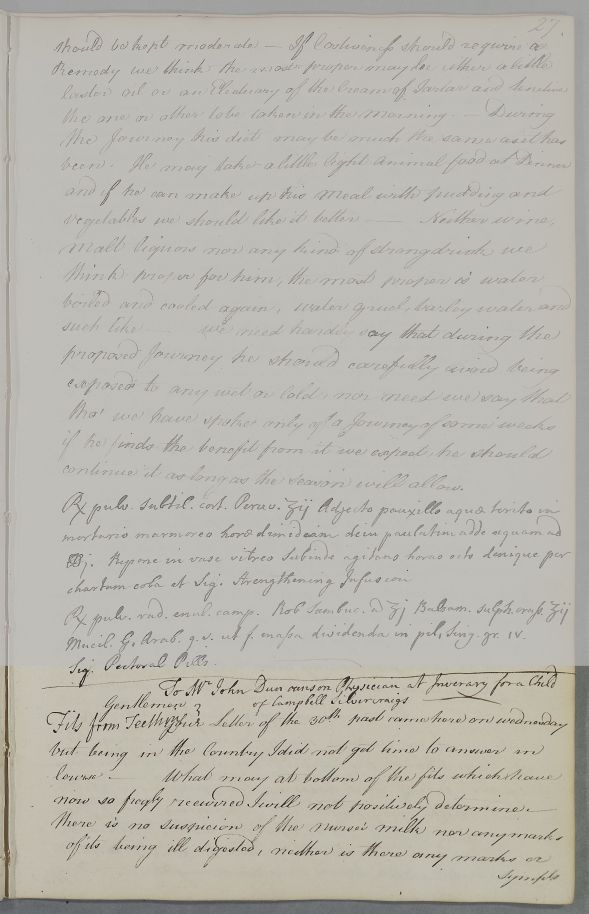 27.
should be kept moderate — If Costiveness should require a
Remedy we think the most proper may be either a little
Castor oil or an Electuary of the Cream of Tartar and lenitive
the one or other to be taken in the Morning. — During
the Journey his diet may be much the same as it has
been. He may take a little light animal food at Dinner
and if he can make up his Meal with pudding and
vegetables we should like it better — Neither wine,
Malt liquors nor any kind of strong drink we
think proper for him, the most proper is water
boiled and cooled again, water gruel, barley water and
such like — we need hardly say that during the
proposed Journey he should carefully avoid being
exposed to any wet or cold, nor need we say that
tho' we have spoke only of a Journey of some weeks
if he finds the benefit from it we expect, he should
continue it as long as the season will allow.
℞ pulv. subtil. cort. Peruv. ʒij Adjecto pauxillo aquæ terito in
mortario marmoreo horæ dimidium dein paulatim adde aquam ad
℔j. Repone in vase vitreo subinde agitans horas octo denique per
chartam cola et Sig. Strengthening Infusion
℞ pulv. rad. enul. camp. Rob Sambuc. a ʒj Balsam. sulph. crass. ʒij
Mucil. G. Arab. q.s. ut f. massa dividenda in pil. sing. gr. iv.
Sig. Pectoral Pills.
To Mr. John Duncanson Physician at Inverary for a Child
Gentlemen of Campbell Silvercraigs
Fits from Teething Your Letter of the 30th past came here on wednesday
but being in the Country I did not get time to answer in
Course — What may at bottom of the fits which have
now so freqly recurred I will not positively determine —
there is no suspicion of the nurse's milk nor any marks
of its being ill digested, neither is there any marks or
Sympts